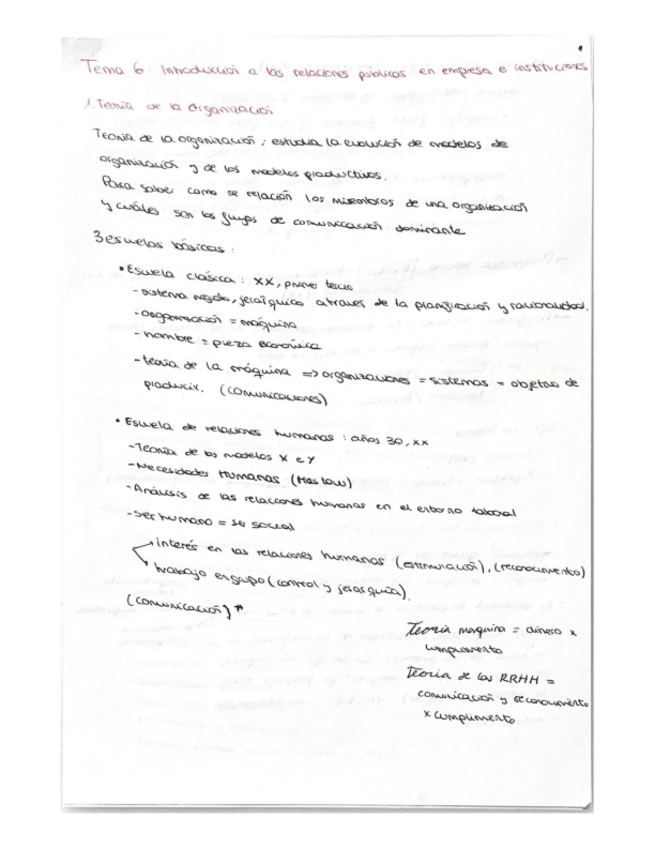 Tema 6: Introducción a las relaciones publicas en empresa e instituciones
1. Teoría de la Organización
Teoría de la organización: estudia la evolución de modelos de
organización y de los modelos productivos.
Para saber como se relación los miembros de una organización
y cuáles son los grupos de comunicación dominante
3 escuelas básicas:
• Escuela clásica: XX, primer tercio
- sistema regido, jerárquico a traves de la planificación y racionalidad.
- organización = máquina
- hombre = pieza económica
- teoría de la máquina => organizaciones = sistemas = objetivo de
producir. (comunicaciones)
• Escuela de relaciones humanas: años 30, XX
- Teoría de los modelos X e Y
- Necesidades Humanas (Maslow)
- Análisis de las relaciones humanas en el entorno laboral
- ser humano = ser social
interés en las relaciones humanas (estimulación), (reconocimiento)
trabajo en grupo (control y jerarquía).
(comunicación)*
Teoría maquina = dinero x
cumplimento
Teoría de las RRHH =
comunicación y reconocimiento
x cumplimento.